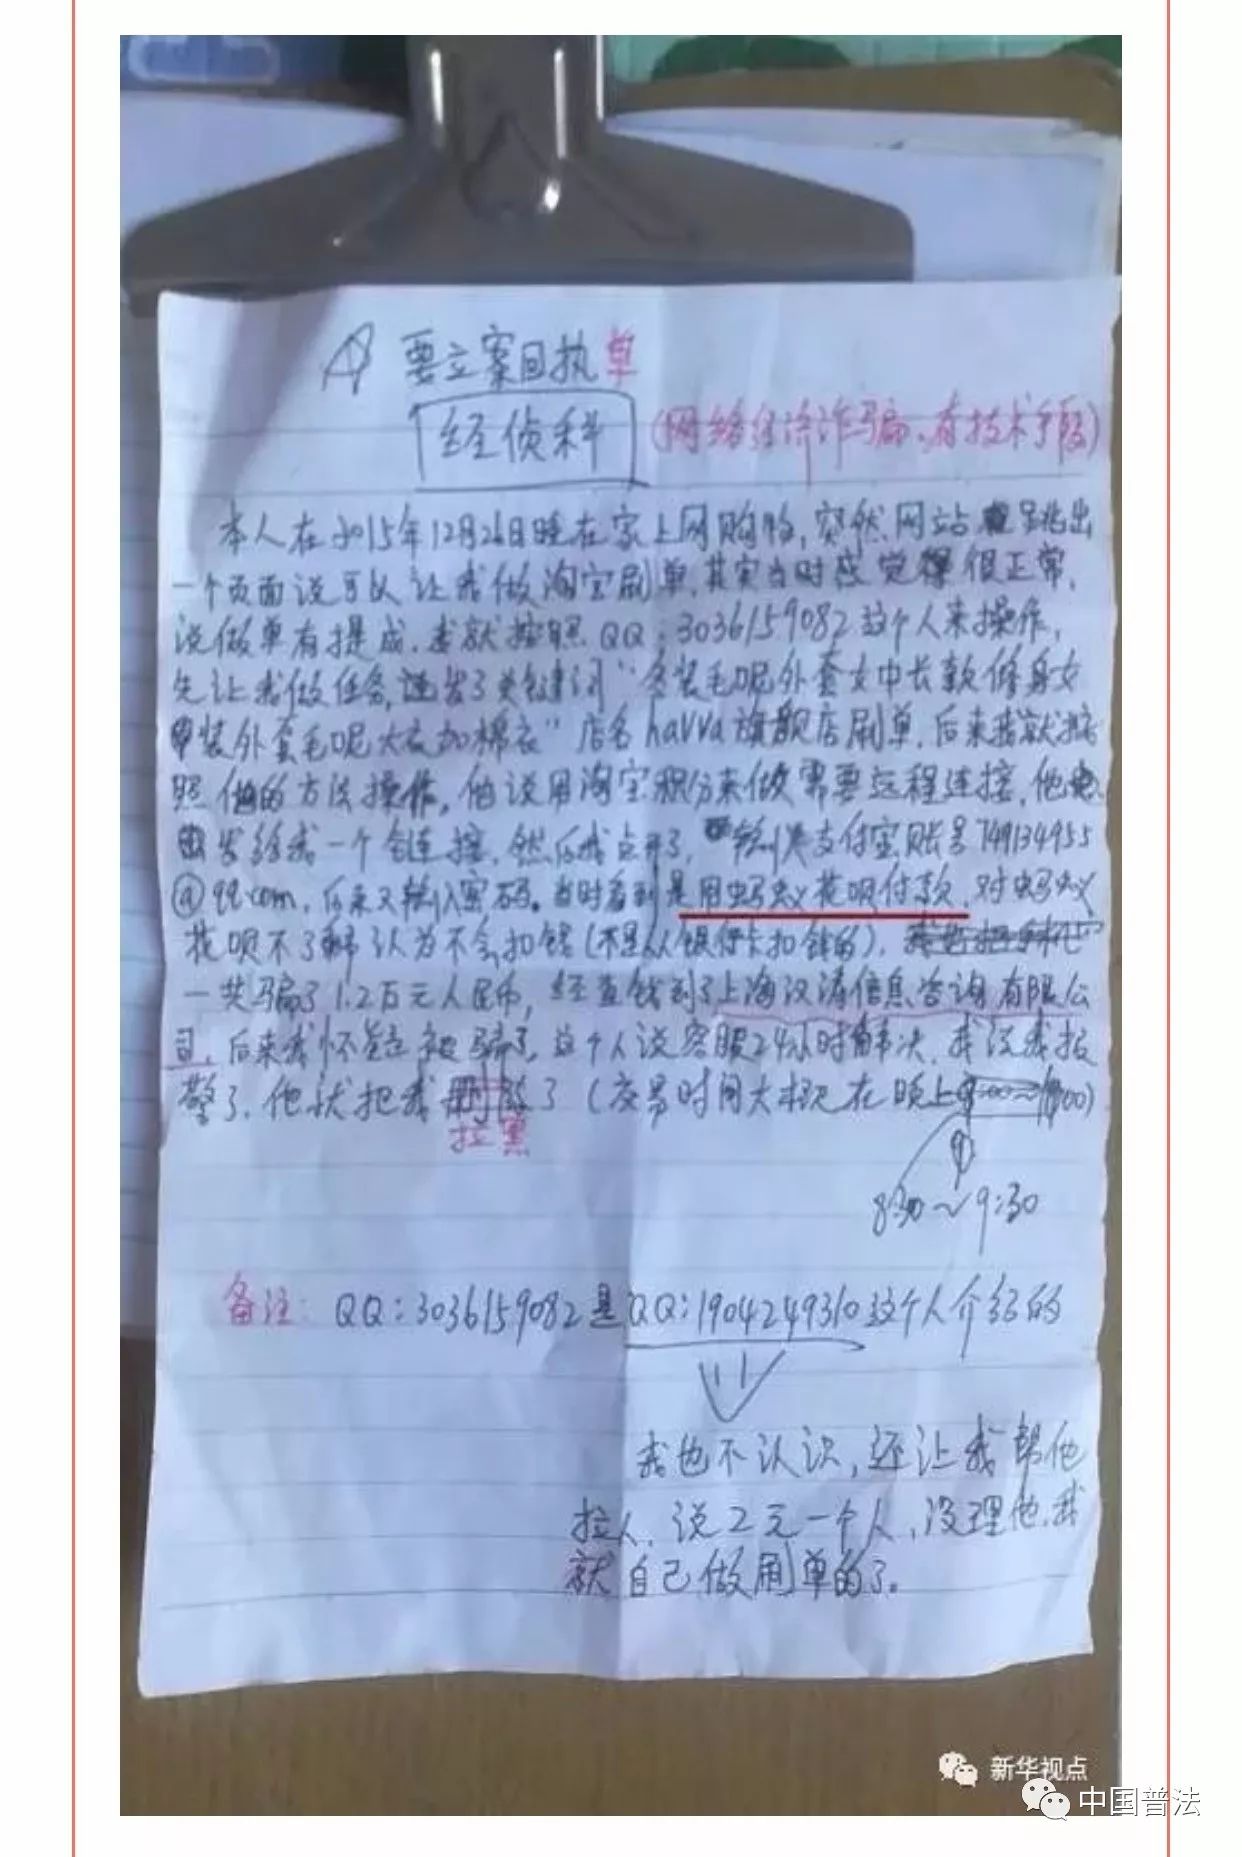 要立案回执单
经侦科
(网络经济诈骗,有技术手段)
本人在2015年12月26日晚在家上网购物,突然网站跳出
一个页面说可以让我做淘宝刷单,其实当时感觉得很正常,
说做单有提成,我就按照QQ:3036159082这个人来操作,
先让我做任务,还发了关键词"冬装毛呢外套女中长款修身女
装外套毛呢大衣加棉衣"店名havva旗舰店刷单,后来我就按
照他的方法操作,他说用淘宝积分来做需要远程连接,他
发给我一个链接,然后我点开了,输入支付宝账号749134955
@qq.com,后来又输入密码。当时看到是用蚂蚁花呗付款,对蚂蚁
花呗不了解认为不会扣钱(不是从银行卡扣钱的),
一共骗了1.2万元人民币,经查钱到了上海汉涛信息咨询有限公
司,后来我怀疑被骗了,这个人说客服24小时解决,我说我报
警了,他就把我删除了(交易时间大概在晚上
拉黑
8:30~9:30
备注:QQ:3036159082是QQ:1904249310这个人介绍的
我也不认识,还让我帮他
拉人,说2元一个人,没理他,我
就自己做刷单的了。
新华视点
中国普法